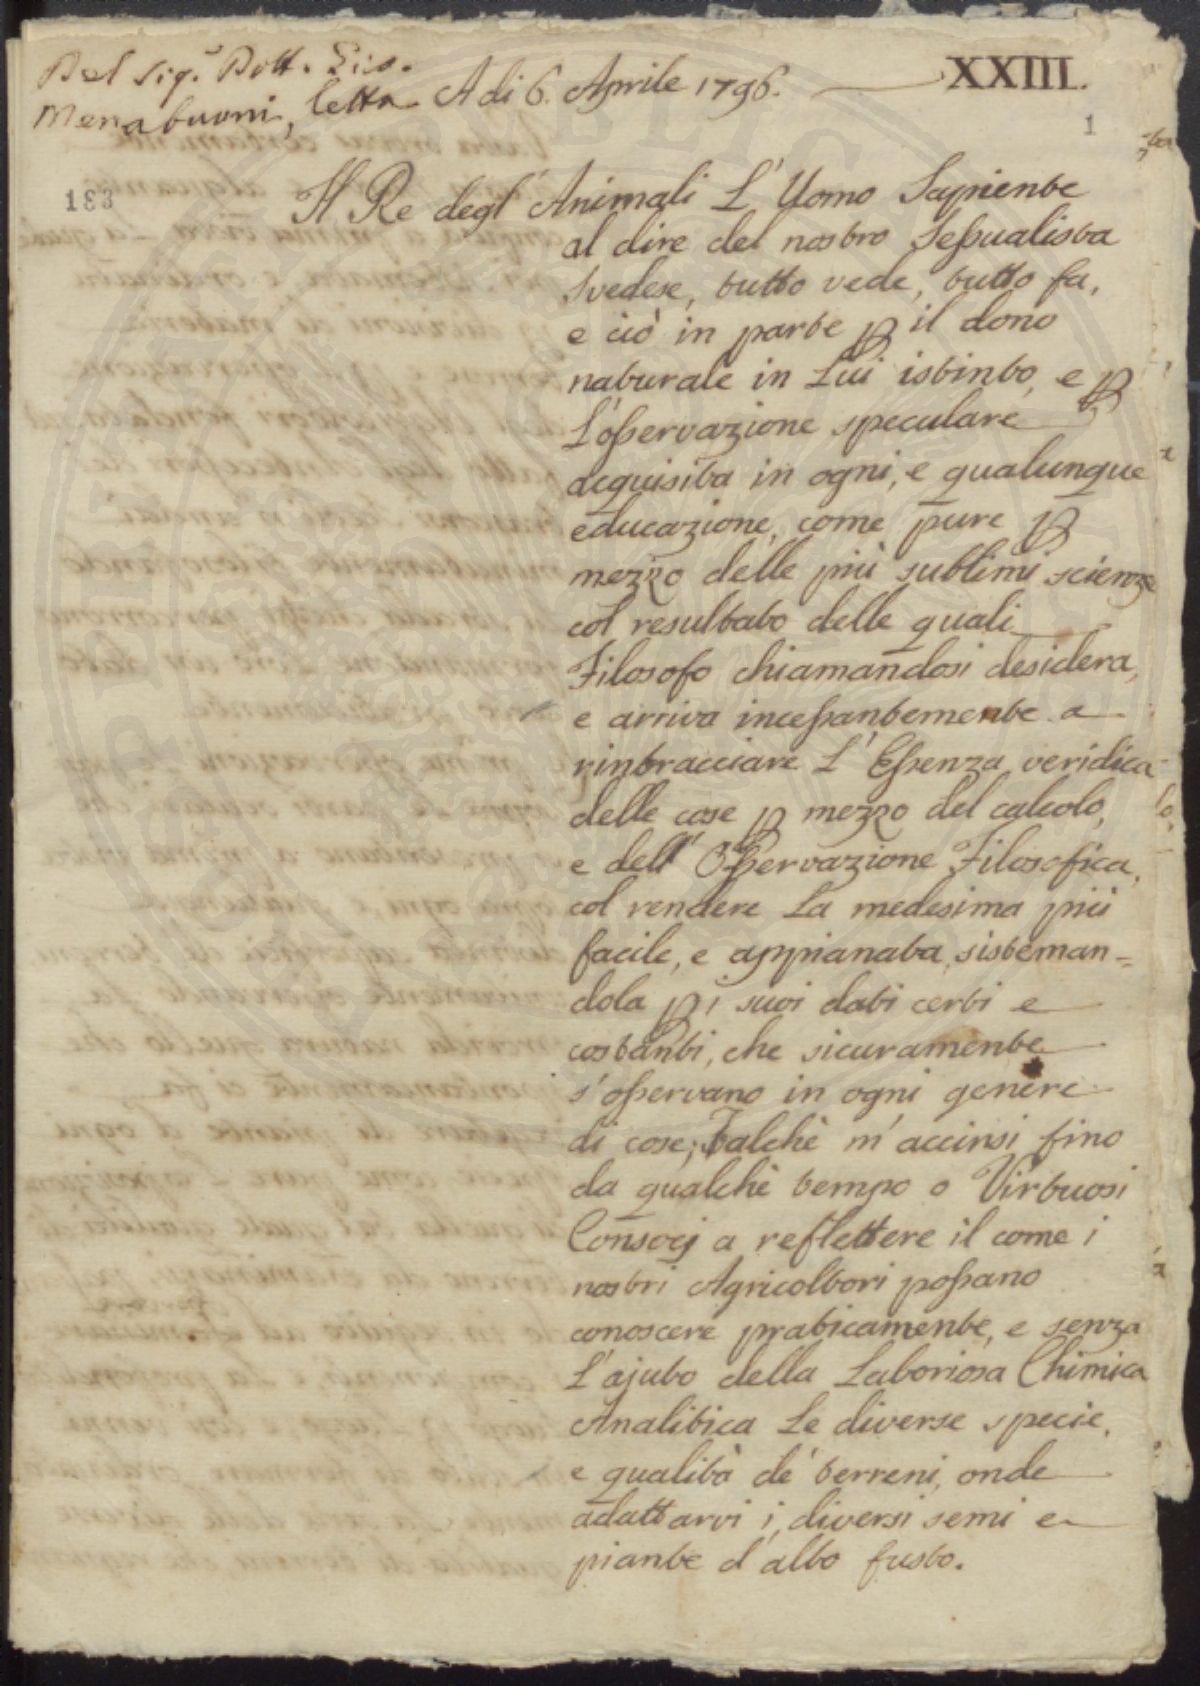 Del Sig.r Dott. Gio.
Menabuoni, letta A di 6. Aprile 1796.
XXIII.
1
183
Il Re degl' Animali L' Uomo Sapiente
al dire del nostro Sessualista
Svedese, tutto vede, tutto fa,
e ciò in parte ꝑ il dono
naturale in Lui istinto, e ꝑ
L'osservazione speculare
acquisita in ogni, e qualunque
educazione, come pure ꝑ
mezzo delle più sublimi scienze
col resultato delle quali
Filosofo chiamandosi desidera,
e arriva incessantemente a
rintracciare L' Essenza veridica
delle cose ꝑ mezzo del calcolo,
e dell' Osservazione Filosofica,
col rendere La medesima più
facile, e appianata, sisteman=
dola ꝑ i suoi dati certi e
costanti, che sicuramente
s' osservano in ogni genere
di cose; Talchè m' accinsi fino
da qualchè tempo o Virtuosi
Consocj a reflettere il come i
nostri Agricoltori possano
conoscere praticamente, e senza
L' ajuto della Laboriosa Chimica
Analitica Le diverse specie,
e qualità de' terreni, onde
adattarvi i diversi semi e
piante d' alto fusto.